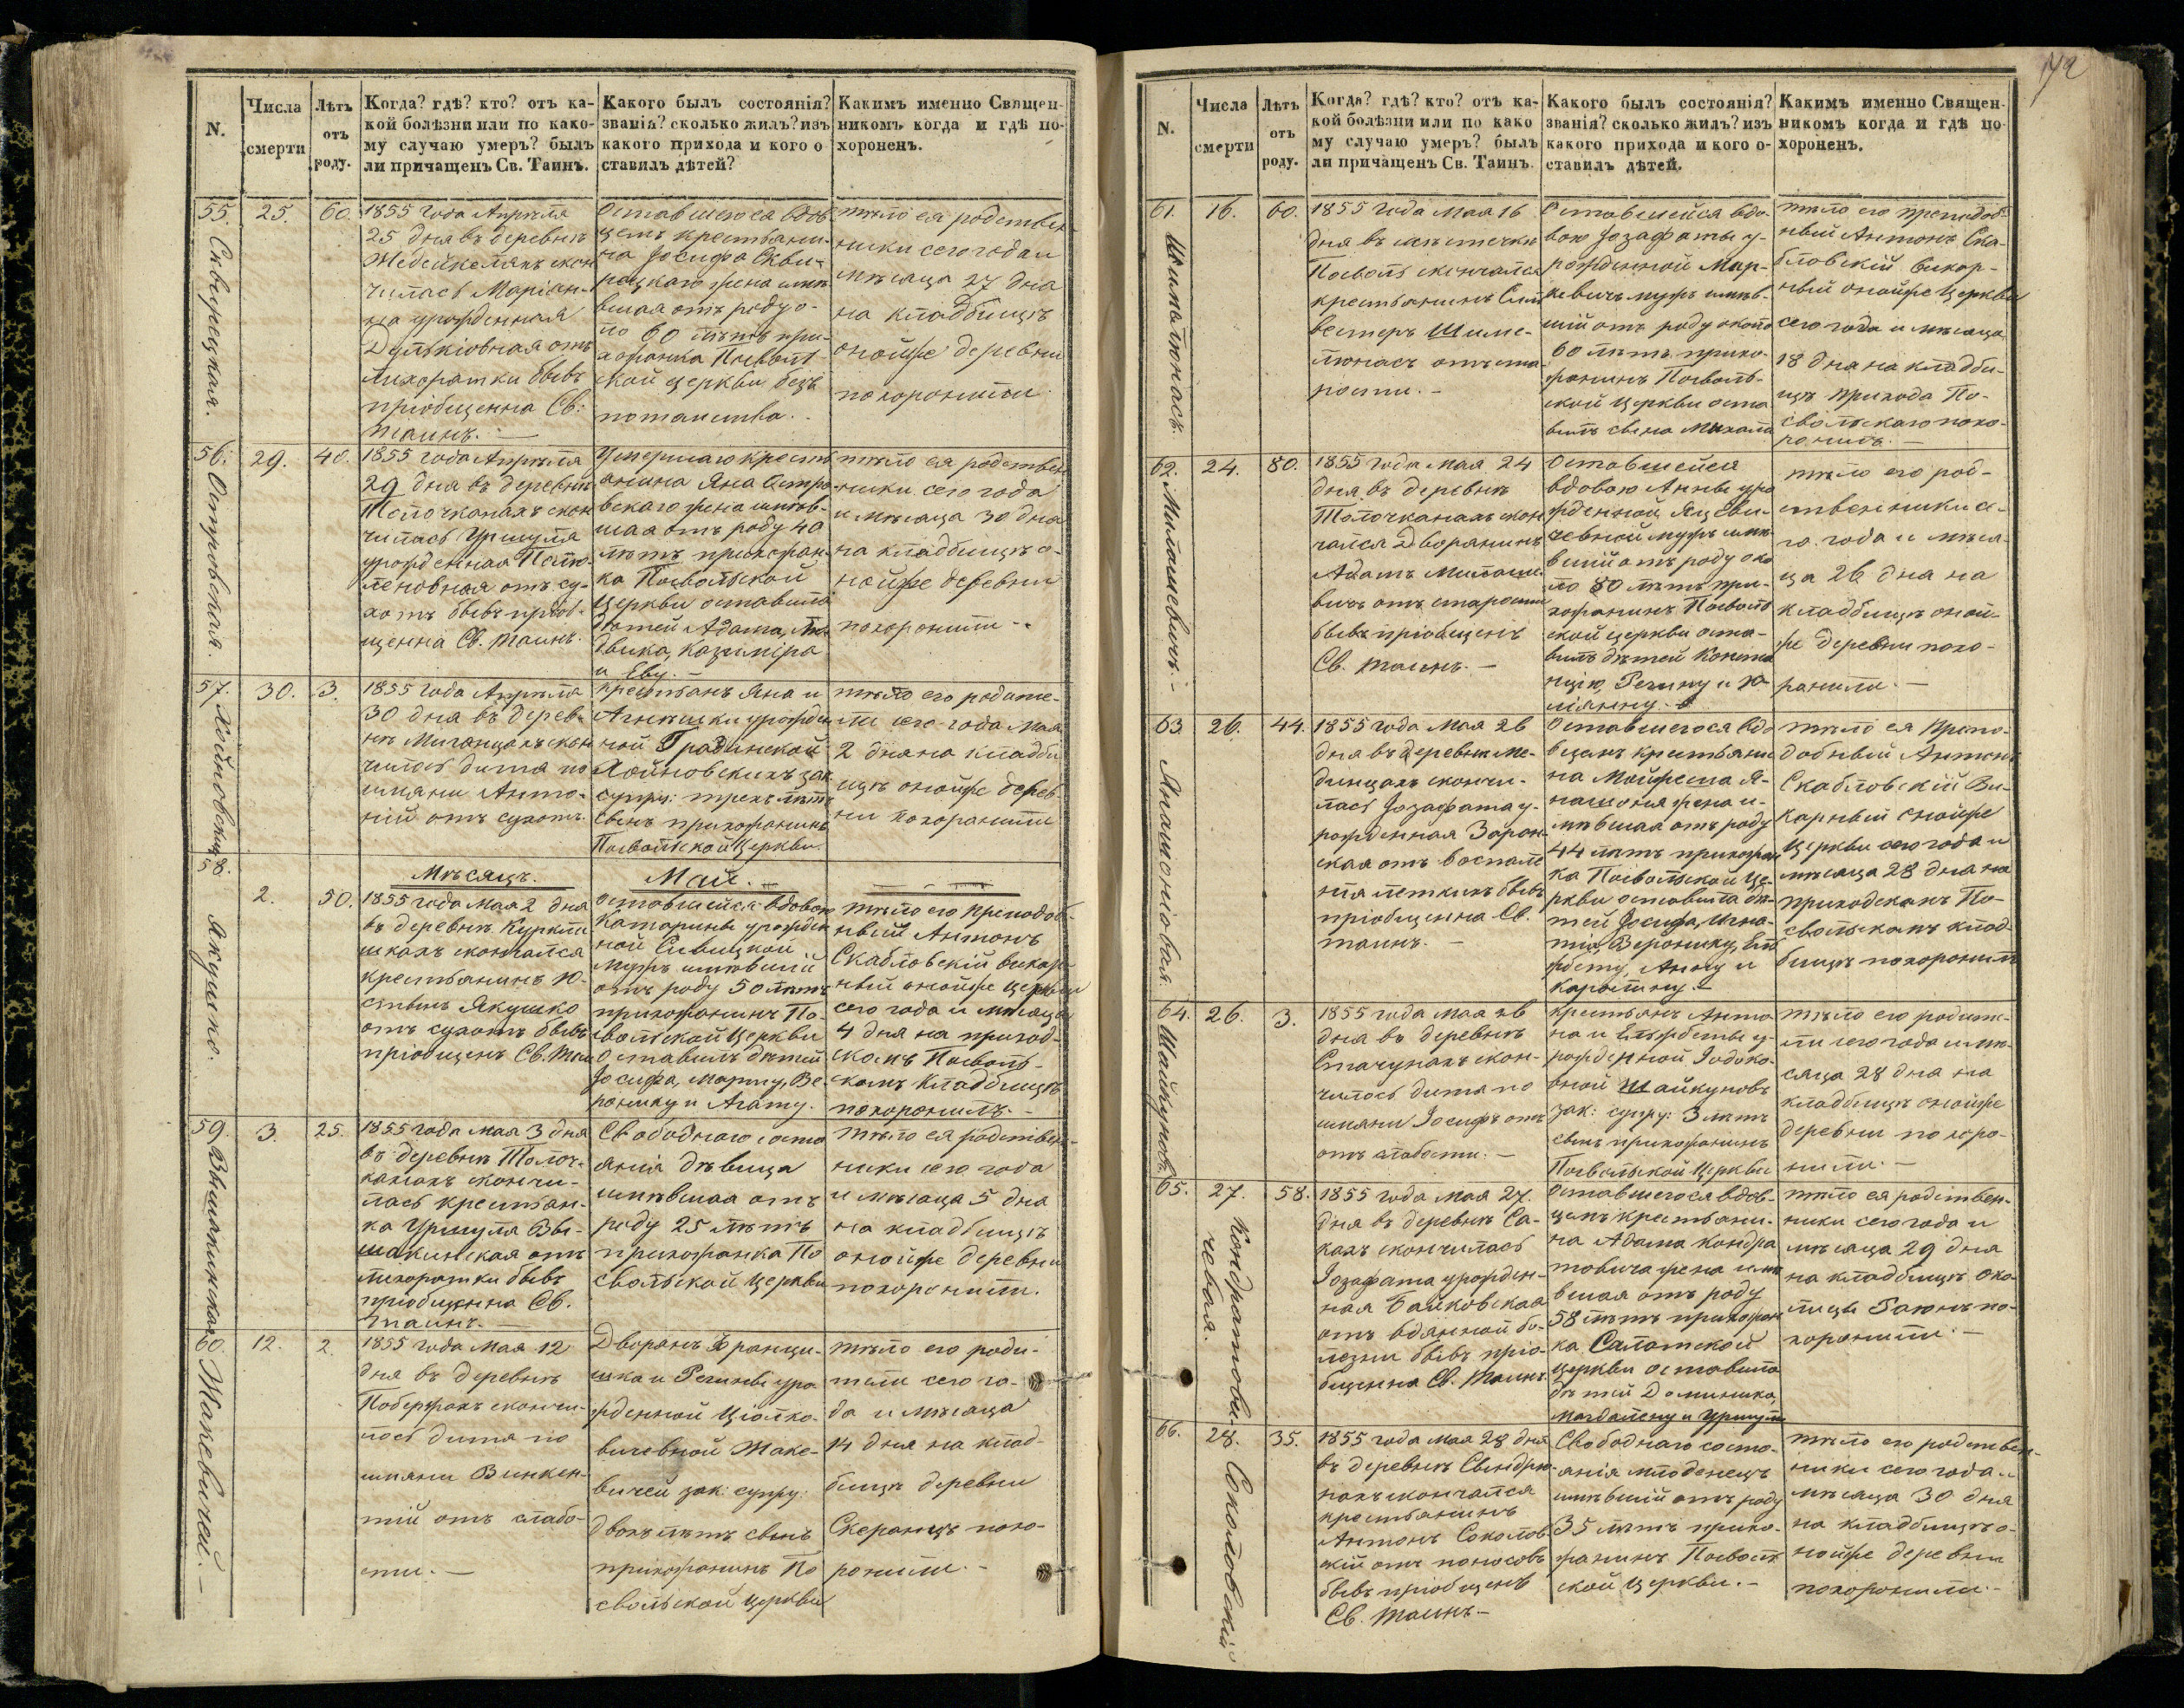 N.
Числа
смерти
Лѣтъ
отъ
роду.
Когда? гдѣ? кто? отъ ка-
кой болѣзни или по како-
му случаю умеръ? былъ
ли причащенъ Св. Таинъ.
Какого былъ состоянія?
званія? сколько жилъ? изъ
какого прихода и кого о
ставилъ дѣтей?
Какимъ именно Священ-
никомъ когда и гдѣ по-
хороненъ.
55.
Сквирецкая.
25.
60.
1855 года Апрѣля
25 дня въ деревнѣ
скон
чилась Маріан-
на урожденная
отъ
лихорадки бывъ
пріобщенна Св:
таинъ. —
Оставшегося вдов
цемъ крестьяни-
на Іосифа Скви-
рецкаго жена имѣ
вшая отъ роду о-
ло 60 лѣтъ при-
хожанка Посволь
ской церкви безъ
потомства.
тѣло ея родствен-
ники сего года и
мѣсяца 27 дня
на кладбищѣ
онойже деревни
похоронили
56.
Островская.
29.
40.
1855 года Апрѣля
29 дня въ деревнѣ
Толочканахъ скон
чилась Уршуля
урожденная
отъ су-
хотъ бывъ пріоб-
щенна Св. Таинъ.
Умершаго кресть
янина Яна Остро-
вскаго жена имѣв-
шая отъ роду 40
лѣтъ прихожан-
ка Посвольской
церкви оставила
дѣтей Адама, Лю-
двика, Казиміра
и Еву. —
тѣло ея родствен
ники сего года
и мѣсяца 30 дня
на кладбищѣ о-
нойже деревни
похоронили -
57.
Хойновскихъ
30.
3.
1855 года Апрѣля
30 дня въ дерев-
нѣ скон
чилось дитя по
имяни Анто-
ній отъ сухотъ.
крестьянъ Яна и
Агнѣшки урожден
ной Градинской
Хойновскихъ зак
супру: трехъ лѣтъ
сынъ прихожанинъ
Посвольской Церкви.
тѣло его родите-
ли сего года Мая
2 дня на кладби
щѣ онойже дерев-
ни похоронили
Мѣсяцъ.
Май. —
58.
Якушко.
2.
50.
1855 года Мая 2 дня
въ деревнѣ Куркли
шкахъ скончался
крестьянинъ Ю-
стинъ Якушко
отъ сухотъ бывъ
пріобщенъ Св. Таин
Оставшейся вдовою
Катарины урожден
ной Сивицкой
мужъ имѣвшій
отъ роду 50 лѣтъ
прихожанинъ По-
свольской Церкви
Оставилъ дѣтей
Іосифа, Марту, Ве-
ронику и Агату.
тѣло его преподоб-
ный Антонъ
Скабловскій викар-
ный онойже церкви
сего года и мѣсяца
4 дня на приход-
скомъ Посволь-
скомъ кладбищѣ
похоронилъ. -
59.
Вышакинская
3.
25.
1855 года мая 3 дня
въ деревнѣ Толоч-
канахъ скончи-
лась крестьян-
ка Уршуля Вы-
шакинская отъ
лихорадки бывъ
пріобщенна Св.
таинъ. —
Свободнаго состо
янія дѣвица
имѣвшая отъ
роду 25 лѣтъ
прихожанка По
свольской Церкви
тѣло ея родствен-
ники сего года
и мѣсяца 5 дня
на кладбищѣ
онойже деревни
похоронили.
60.
Жакевичей. —
12.
2.
1855 года Мая 12
дня въ деревнѣ
Побержахъ скончи-
лось дитя по
имяни Винкен-
тій отъ слабо-
сти. —
Дворянъ Франци-
шка и Регины уро
жденной Ціолко-
вичовной Жаке-
вичей зак: супру:
двохъ лѣтъ сынъ
прихожанинъ По
свольской Церкви
тѣло его роди-
тели сего го-
да и мѣсяца
14 дня на клад-
бищѣ деревни
похо-
ронили. -
72
N.
Числа
смерти
Лѣтъ
отъ
роду.
Когда? гдѣ? кто? отъ ка-
кой болѣзни или по како
му случаю умеръ? былъ
ли причащенъ Св. Таинъ.
Какого былъ состоянія?
званія? сколько жилъ? изъ
какого прихода и кого о-
ставилъ дѣтей.
Какимъ именно Священ-
никомъ когда и гдѣ по
хороненъ.
61.
Шимелюнасъ.
16.
60.
1855 года Мая 16
дня въ мѣстечкѣ
Посволь скончался
крестьянинъ Силь
вестеръ Шиме-
люнасъ отъ ста-
рости. -
Оставшейся вдо-
вою Іозафаты у-
рожденной Мар-
кевичъ мужъ имѣв-
шій отъ роду около
60 лѣтъ прихо-
жанинъ Посволь-
ской Церкви оста
вилъ сына Михала
тѣло его преподоб-
ный Антонъ Ска-
бловскій викар-
ный онойже Церкви
сего года и мѣсяца
18 дня на кладби-
щѣ прихода По-
свольскаго похо-
ронилъ. —
62.
Милошевичъ. —
24.
80.
1855 года мая 24
дня въ деревнѣ
Толочканахъ скон
чался Дворянинъ
Адамъ Милоше-
вичъ отъ старости
бывъ пріобщенъ
Св. таинъ. —
Оставшейся
вдовою Анны уро
жденной Яцеви-
чевной мужъ имѣ
вшій отъ роду око
ло 80 лѣтъ при-
хожанинъ Посволь
ской церкви оста-
вилъ дѣтей Конста
нцію, Регину и Ю-
ліянну. -
тѣло его род-
ственники се-
го года и мѣся-
ца 26 дня на
кладбищѣ оной-
же деревни похо-
ронили. —
63.
Янашоніовая.
26.
44.
1855 года Мая 26
дня въ деревнѣ Ме-
динцахъ скончи-
лась Іозафата у-
рожденная Зарон-
ская отъ воспале
нія легкихъ бывъ
пріобщенна Св.
таинъ. —
Оставшегося вдо
вцемъ крестьяни
на Мойжеша Я-
нашоня жена и-
мѣвшая отъ роду
44 лѣтъ прихожан
ка Посвольской Це-
ркви оставила дѣ-
тей Іосифа, Игна-
тія, Веронику, Ель
жбету, Анну и
Каролину. —
тѣло ея Препо-
добный Антонъ
Скабловскій Ви-
карный онойже
Церкви сего года и
мѣсяца 28 дня на
приходскомъ По-
свольскомъ клад-
бищѣ похоронилъ
64.
Шайкуновъ
26.
3.
1855 года Мая 26
дня въ деревнѣ
Стачунахъ скон-
чилось дитя по
имяни Іосифъ отъ
отъ слабости. —
крестьянъ Анто
на и Ельжбеты у-
рожденной Годоко-
вной Шайкуновъ
зак: супру: 3 лѣтъ
сынъ прихожанинъ
Посвольской Церкви
тѣло его родите-
ли сего года и мѣ-
сяца 28 дня на
кладбищѣ онойже
деревни похоро-
нили. —
65.
Кондратови-
чевая.
27.
58.
1855 года Мая 27.
дня въ деревнѣ Са-
кахъ скончилась
Іозафата урожден-
ная Байковская
отъ водянной бо-
лезни бывъ прio-
бщенна Св. Таинъ
Оставшегося вдов-
цемъ крестьяни-
на Адама Кондра
товича жена имѣ
вшая отъ роду
58 лѣтъ прихожан
ка Салатской
церкви оставила
дѣтей Доминика,
Магдалену и Уршулю
тѣло ея родствен-
ники сего года и
мѣсяца 29 дня
на кладбищѣ око-
лицы по-
хоронили. —
66.
Соколовскій
28.
35.
1855 года мая 28 дня
въ деревнѣ
нахъ скончался
крестьянинъ
Антонъ Соколов-
скій отъ поносовъ
бывъ пріобщенъ
Св. Таинъ —
Свободнаго состо-
янія млоденецъ
имѣвшій отъ роду
35 лѣтъ прихо-
жанинъ Посволь
ской Церкви. —
тѣло его родствен-
ники сего года и
мѣсяца 30 дня
на кладбищѣ о-
нойже деревни
похоронили. -